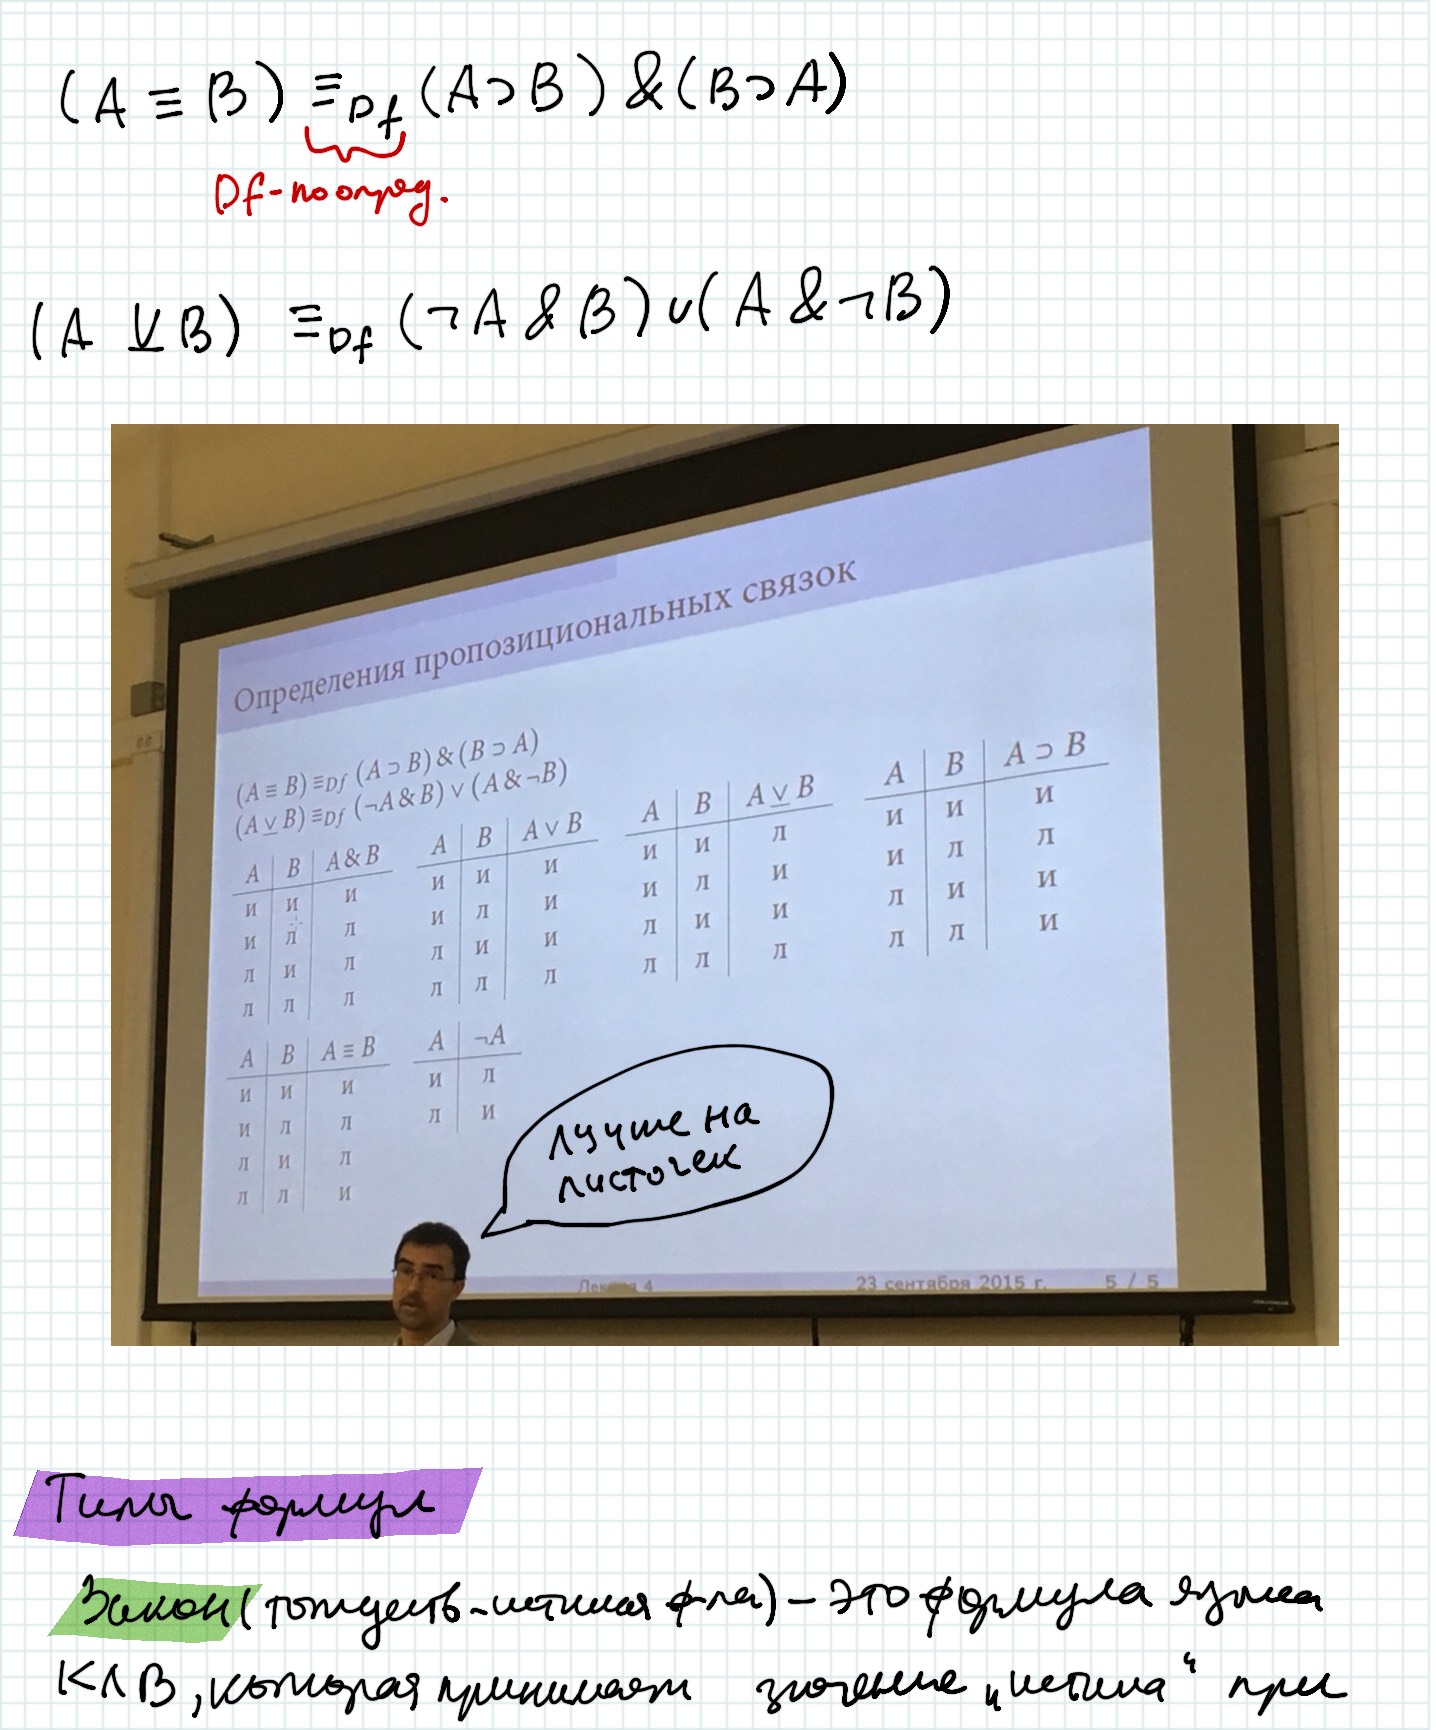 (A ≡ B) ≡Df (A ⊃ B) & (B ⊃ A)
Df - по опред.
(A ⊻ B) ≡Df (¬A & B) ∨ (A & ¬B)
Определения пропозициональных связок
(A ≡ B) ≡Df (A ⊃ B) & (B ⊃ A)
(A ⊻ B) ≡Df (¬A & B) ∨ (A & ¬B)
A B A & B
и и и
и л л
л и л
л л л
A B A ∨ B
и и и
и л и
л и и
л л л
A B A ⊻ B
и и л
и л и
л и и
л л л
A B A ⊃ B
и и и
и л л
л и и
л л и
A B A ≡ B
и и и
и л л
л и л
л л и
A ¬A
и л
л и
лучше на
листочек
Лекция 4 23 сентября 2015 г. 5 / 5
Типы формул
Закон (тождеств-истинная ф-ла) – это формула языка
КЛВ, которая принимает значение „истина“ при